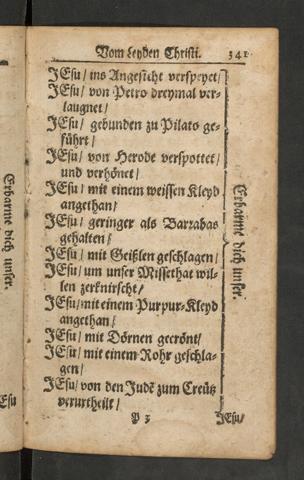 Vom Leyden Christi. 341
JEsu/ ins Angesicht verspeyet/
JEsu/ von Petro dreymal ver-
laugnet/
JEsu/ gebunden zu Pilato ge-
führt/
JEsu/ von Herode verspottet/
und verhönet/
JEsu/ mit einem weissen Kleyd
angethan/
JEsu/ geringer als Barrabas
gehalten/
JEsu/ mit Geißlen geschlagen/
JEsu/ um unser Missethat wil-
len zerknirscht/
JEsu/ mit einem Purpur-Kleyd
angethan/
JEsu/ mit Dörnen gecrönt/
JEsu/ mit einem Rohr geschla-
gen/
JEsu/ von den Judẽ zum Creütz
verurtheilt/
P 3 JEsu/
Erbarme dich unser.
Erbarme dich unser.
JEsu